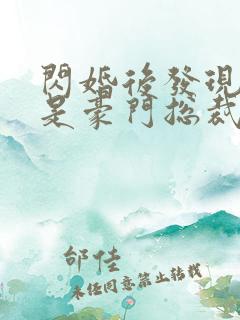 閃婚後發現
是豪門總裁
邰佳
未經同意禁止轉載